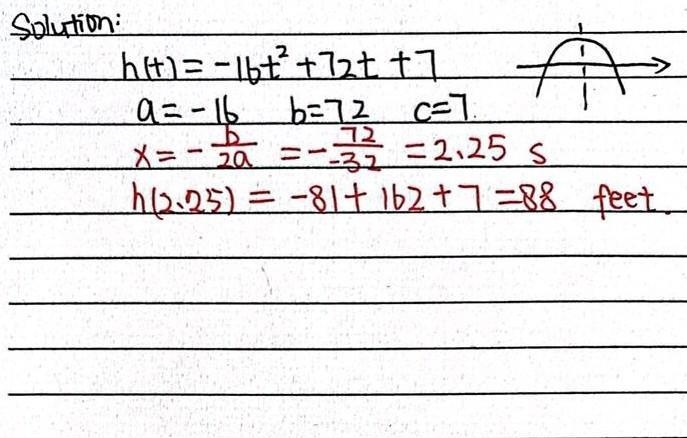 Solution:
h(t) = -16t² + 72t + 7
a = -16 b=72 c=7
x = -b/2a = -72/-32 = 2.25 s
h(2.25) = -81 + 162 + 7 = 88 feet.